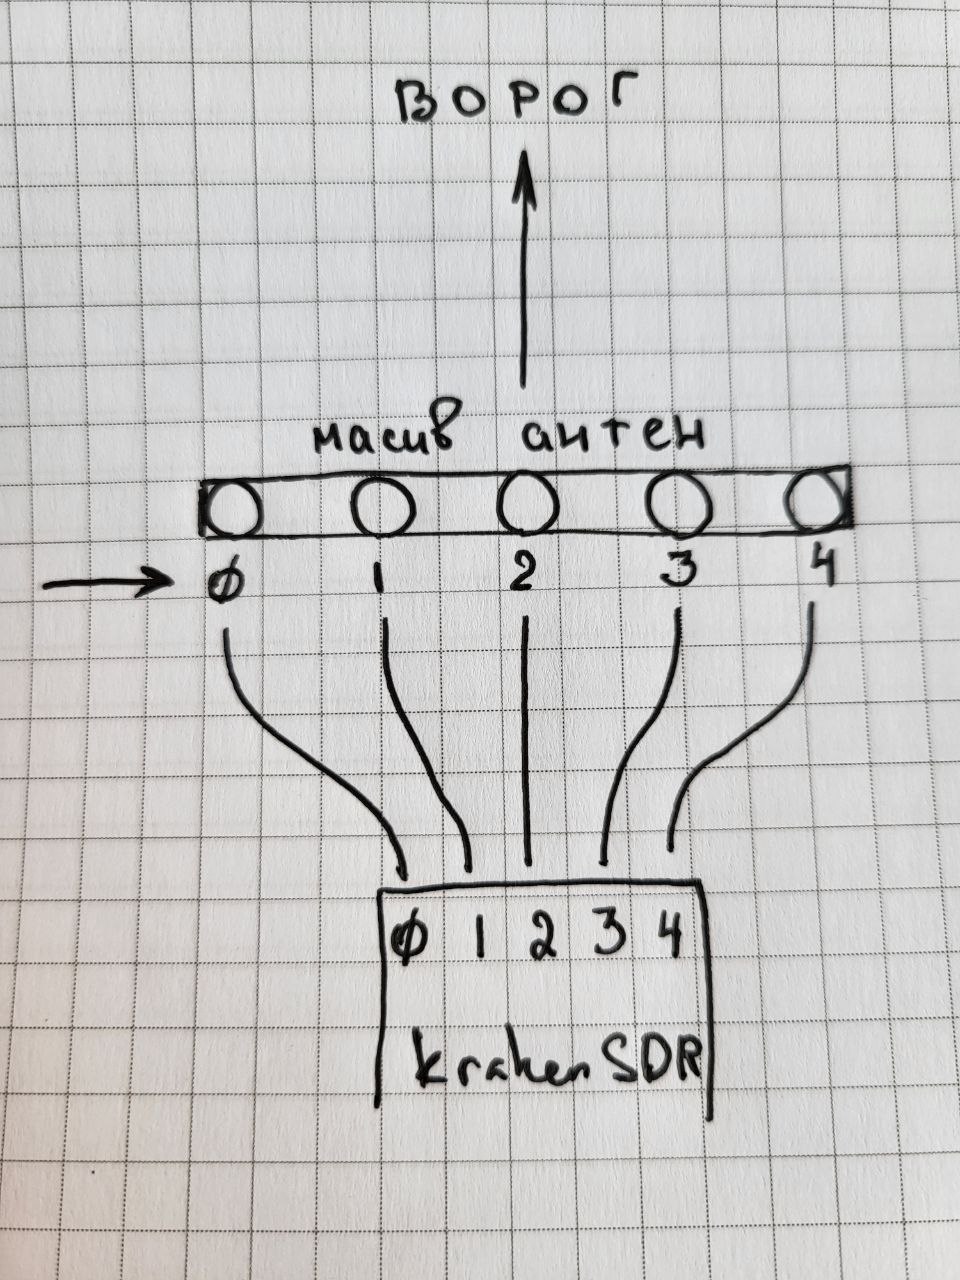 ворог
масив антен
0 1 2 3 4
0 1 2 3 4
kraken SDR